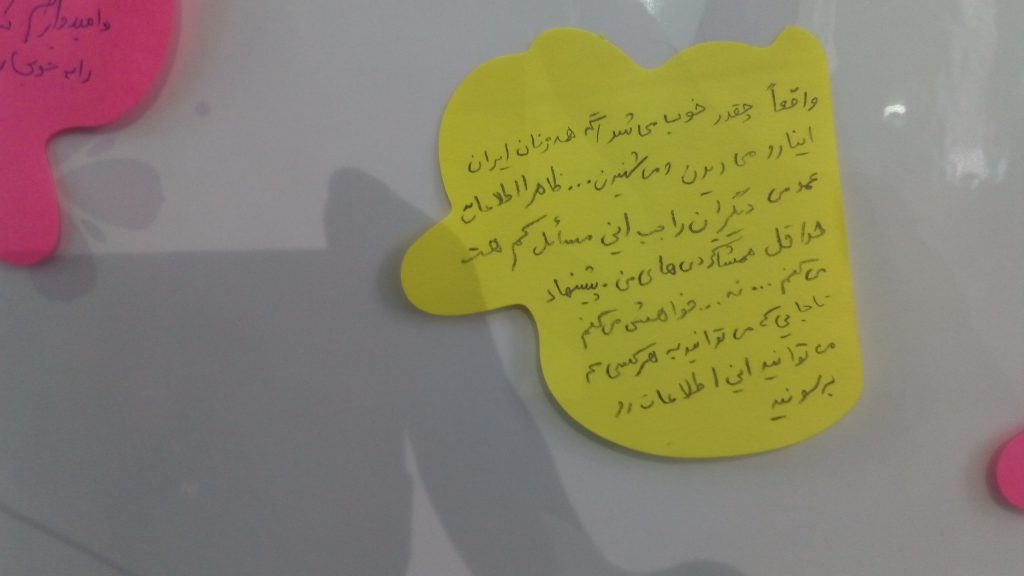 وامیدوارم
رابه خوبی
واقعاً چقدر خوب می شد اگه همه زنان ایران
اینارو می دیدن و می شنیدن... ظاهرا اطلاعات
عمومی دیگران راجب این مسائل کم هست
حداقل همشاگردی های من. پیشنهاد
می کنم... نه... خواهش می کنم
تاجایی که می توانید به هر کسی که
می توانید این اطلاعات رو
برسونید